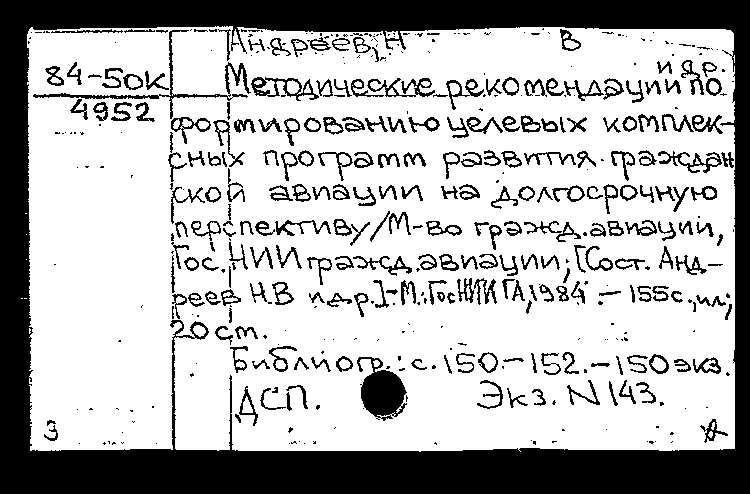 Андреев, Н В
и др.
84-50К Методические рекомендации по
4952
формированию целевых комплек-
сных программ развития граждан
ской авиации на долгосрочную
перспективу/М-во гражд. авиации,
Гос. НИИ гражд. авиации; [Сост. Анд-
реев Н.В и др.]-М.:ГосНИИ ГА, 1984 .- 155с., ил.;
20 см.
Библиогр.: с. 150-152.-150 экз.
ДСП. Экз. N 143.
3